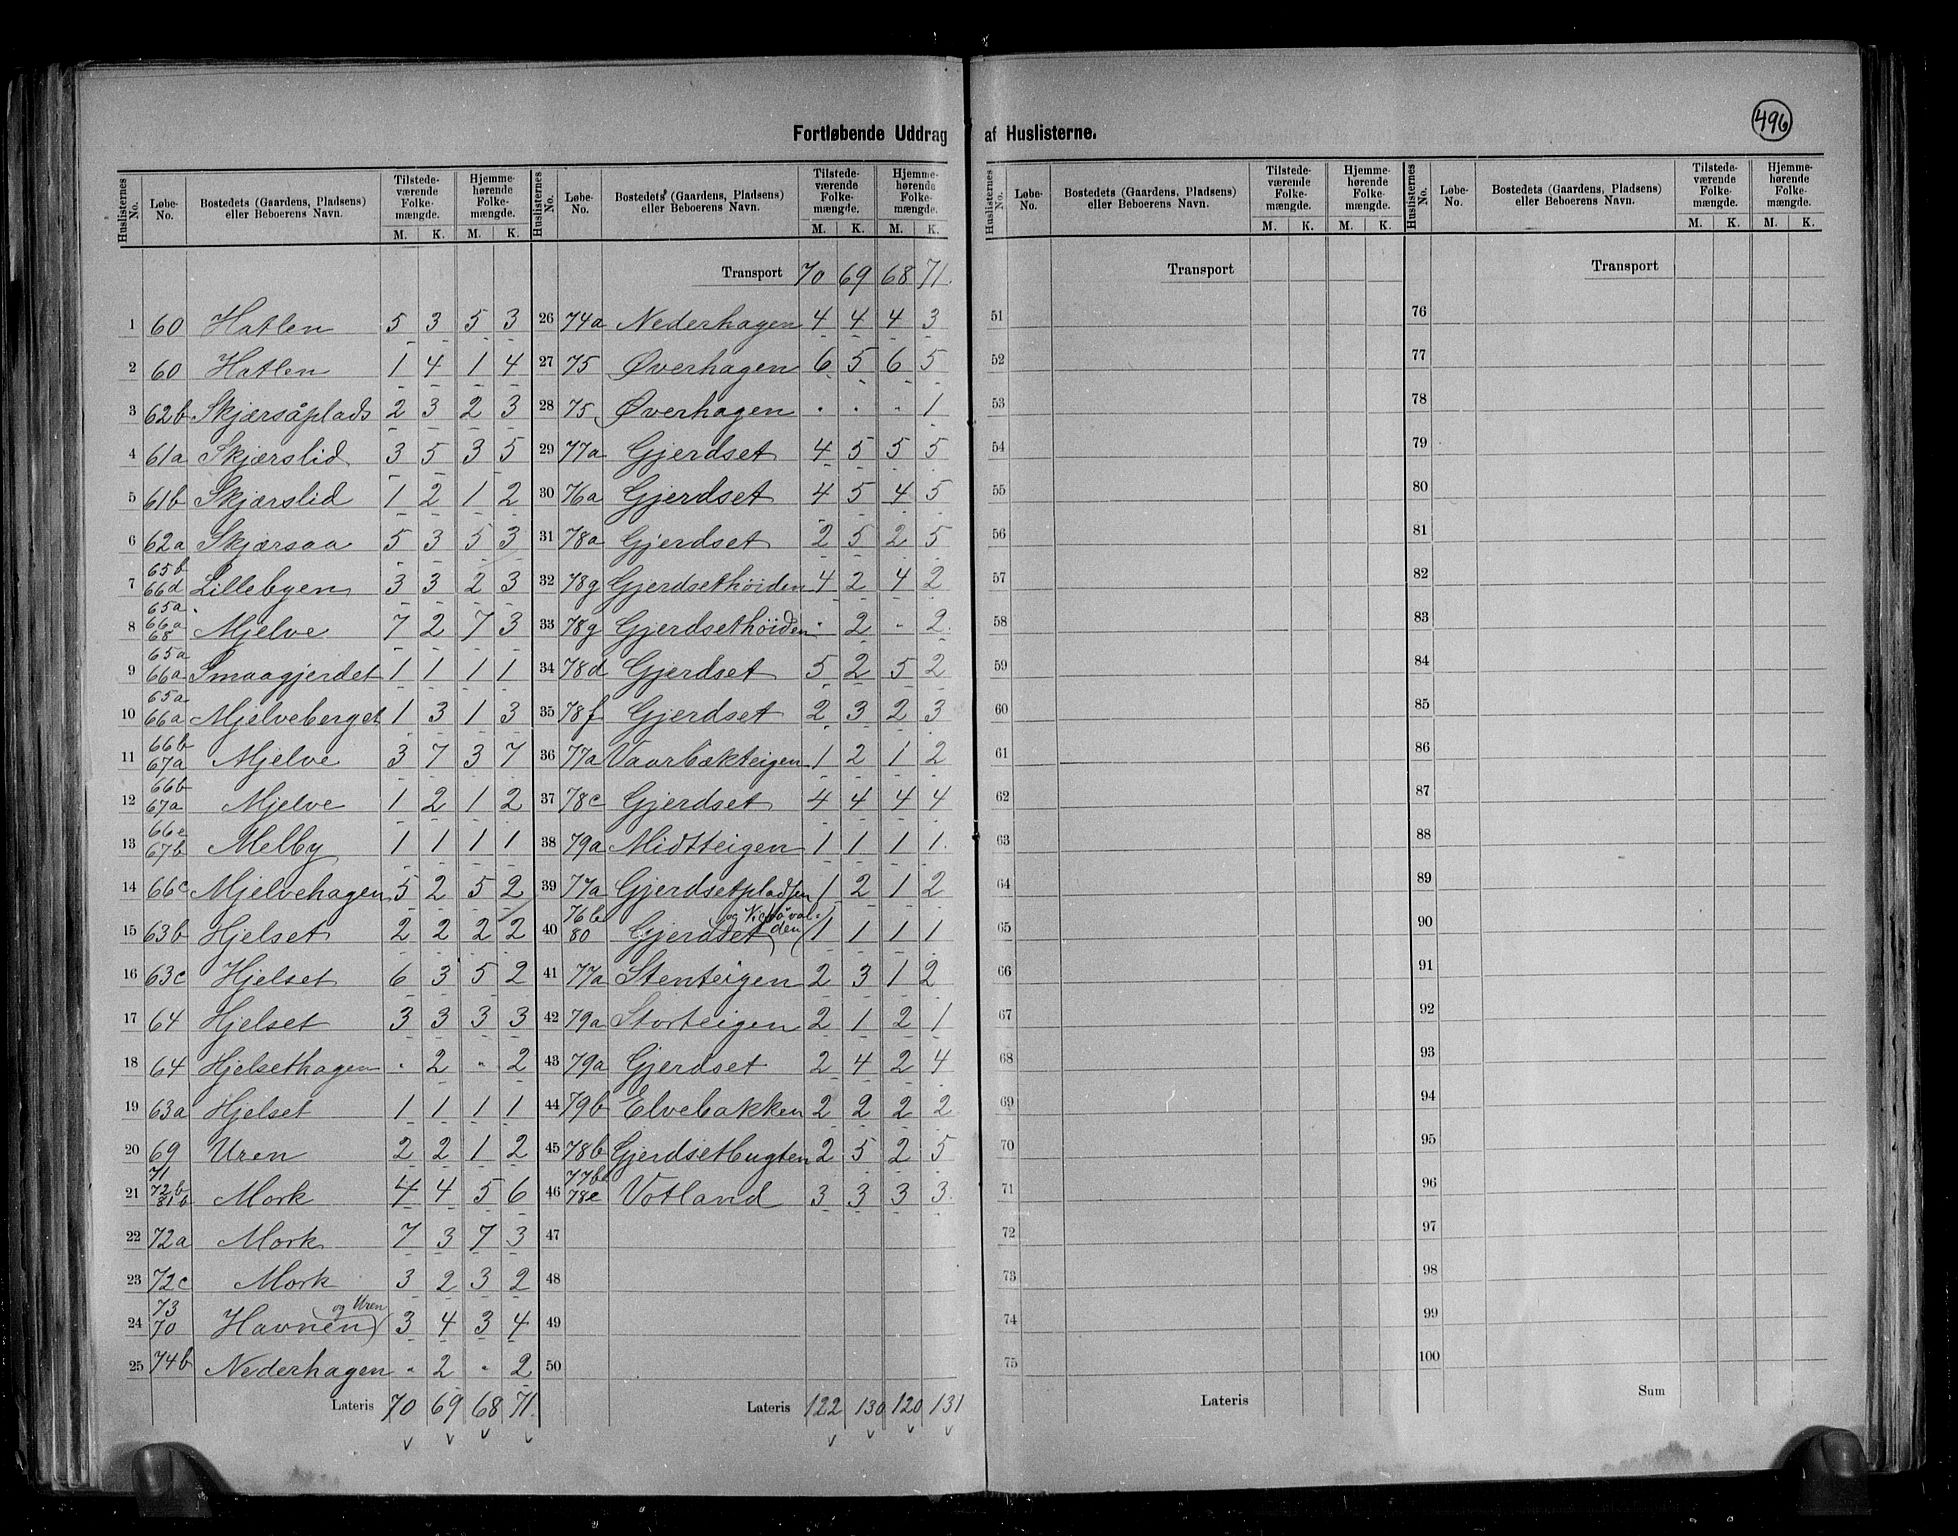 496
Fortløbende Uddrag af Huslisterne.
Huslisternes No. | Løbe-No. | Bostedets (Gaardens, Pladsens) eller Beboerens Navn. | Tilstedeværende Folkemængde. M. K. | Hjemmehørende Folkemængde. M. K.
1 60 Hatlen 5 3 5 3
2 60 Hatlen 1 4 1 4
3 62b Skjærsåplads 2 3 2 3
4 61a Skjærslid 3 5 3 5
5 61b Skjærslid 1 2 1 2
6 62a Skjærsaa 5 3 5 3
7 65b 66d Lillebyen 3 3 2 3
8 65a 66a 68 Mjelve 7 2 7 3
9 65a 66a Smaagjerdet 1 1 1 1
10 65a 66a Mjelveberget 1 3 1 3
11 66b 67a Mjelve 3 7 3 7
12 66b 67a Mjelve 1 2 1 2
13 66e 67b Melby 1 1 1 1
14 66c Mjelvehagen 5 2 5 2
15 63b Hjelset 2 2 2 2
16 63c Hjelset 6 3 5 2
17 64 Hjelset 3 3 3 3
18 64 Hjelsethagen " 2 " 2
19 63a Hjelset 1 1 1 1
20 69 Uren 2 2 1 2
21 71 72b 81b Mork 4 4 5 6
22 72a Mork 7 3 7 3
23 72c Mork 3 2 3 2
24 73 70 Havnen og Uren 3 4 3 4
25 74b Nederhagen " 2 " 2
Lateris 70 69 68 71.
Huslisternes No. | Løbe-No. | Bostedets (Gaardens, Pladsens) eller Beboerens Navn. | Tilstedeværende Folkemængde. M. K. | Hjemmehørende Folkemængde. M. K.
Transport 70 69 68 71.
26 74a Nederhagen 4 4 4 3
27 75 Øverhagen 6 5 6 5
28 75 Øverhagen " " " 1
29 77a Gjerdset 4 5 5 5
30 76a Gjerdset 4 5 4 5
31 78a Gjerdset 2 5 2 5
32 78g Gjerdsethøiden 4 2 4 2
33 78g Gjerdsethöiden " 2 " 2
34 78d Gjerdset 5 2 5 2
35 78f Gjerdset 2 3 2 3
36 77a Vaarbækteigen 1 2 1 2
37 78c Gjerdset 4 4 4 4
38 79a Midtteigen 1 1 1 1
39 77a Gjerdsetpladsen 1 2 1 2
40 76b 80 Gjerdset og 1 1 1 1
41 77a Stenteigen 2 3 1 2
42 79a Storteigen 2 1 2 1
43 79a Gjerdset 2 4 2 4
44 79b Elvebakken 2 2 2 2
45 78b Gjerdsetbugten 2 5 2 5
46 77b 78e Votland 3 3 3 3
47
48
49
50
Lateris 122 130 120 131
Huslisternes No. | Løbe-No. | Bostedets (Gaardens, Pladsens) eller Beboerens Navn. | Tilstedeværende Folkemængde. M. K. | Hjemmehørende Folkemængde. M. K.
Transport
51
52
53
54
55
56
57
58
59
60
61
62
63
64
65
66
67
68
69
70
71
72
73
74
75
Lateris
Huslisternes No. | Løbe-No. | Bostedets (Gaardens, Pladsens) eller Beboerens Navn. | Tilstedeværende Folkemængde. M. K. | Hjemmehørende Folkemængde. M. K.
Transport
76
77
78
79
80
81
82
83
84
85
86
87
88
89
90
91
92
93
94
95
96
97
98
99
100
Sum